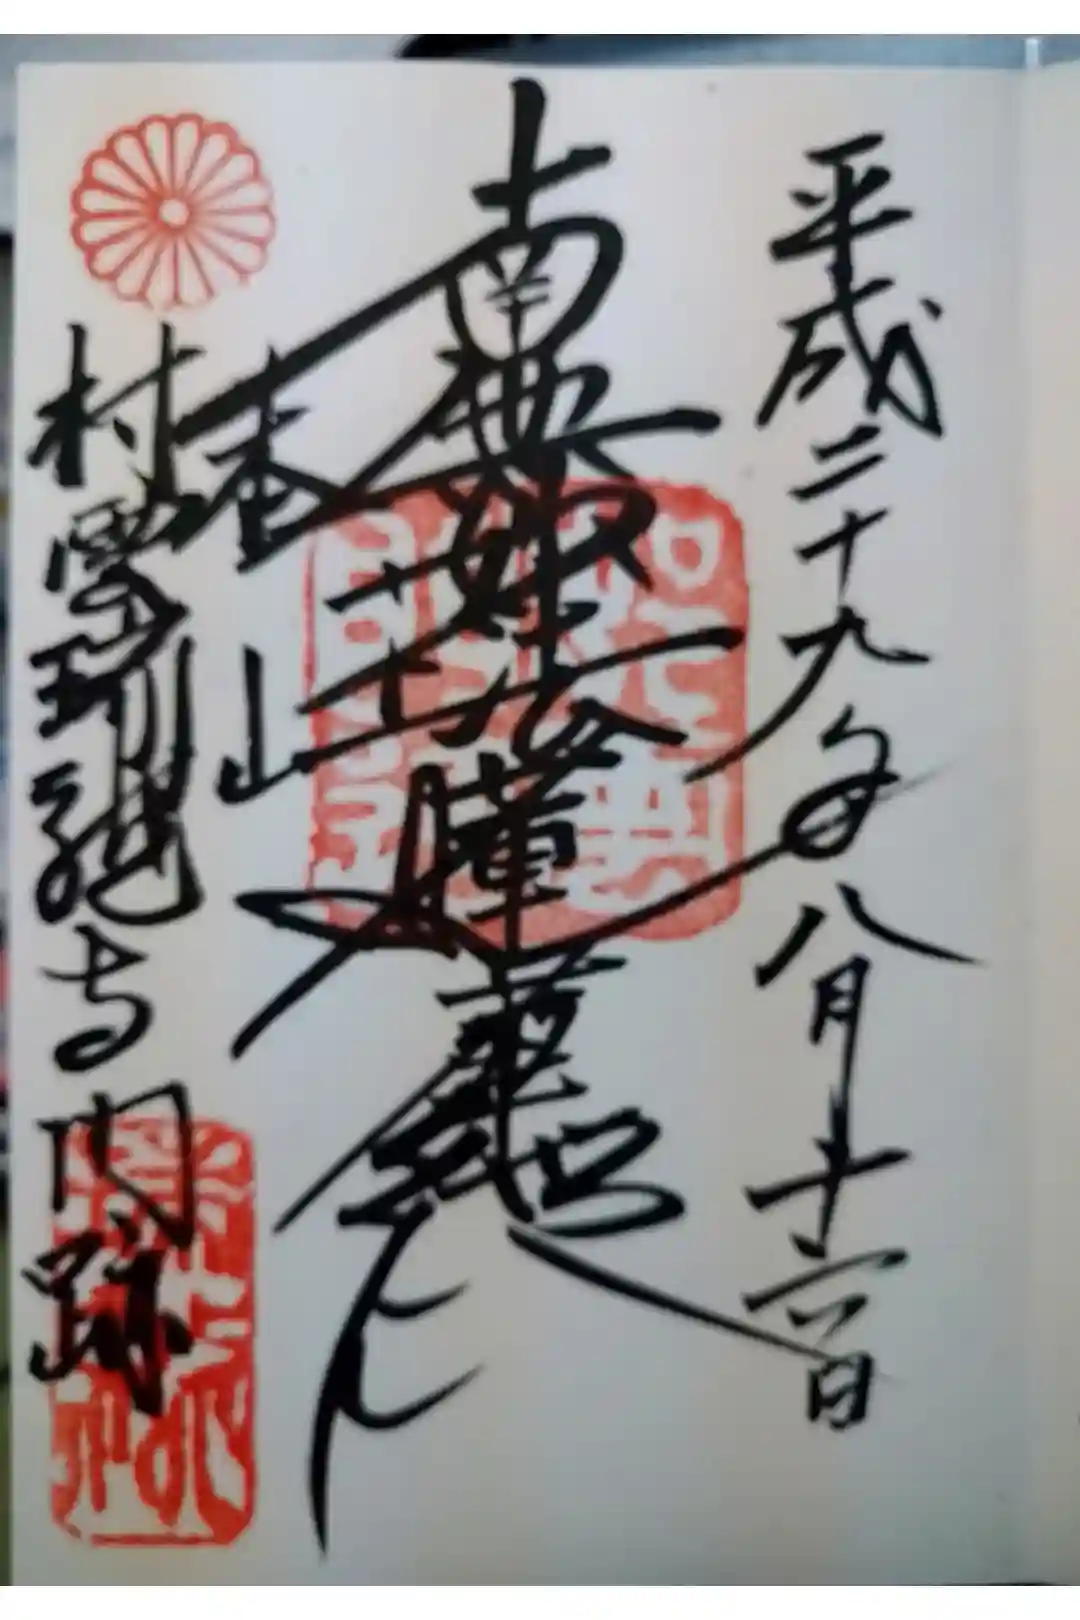 平成二十九年八月十六日
南無妙法蓮華経
本山
村雲瑞龍寺門跡